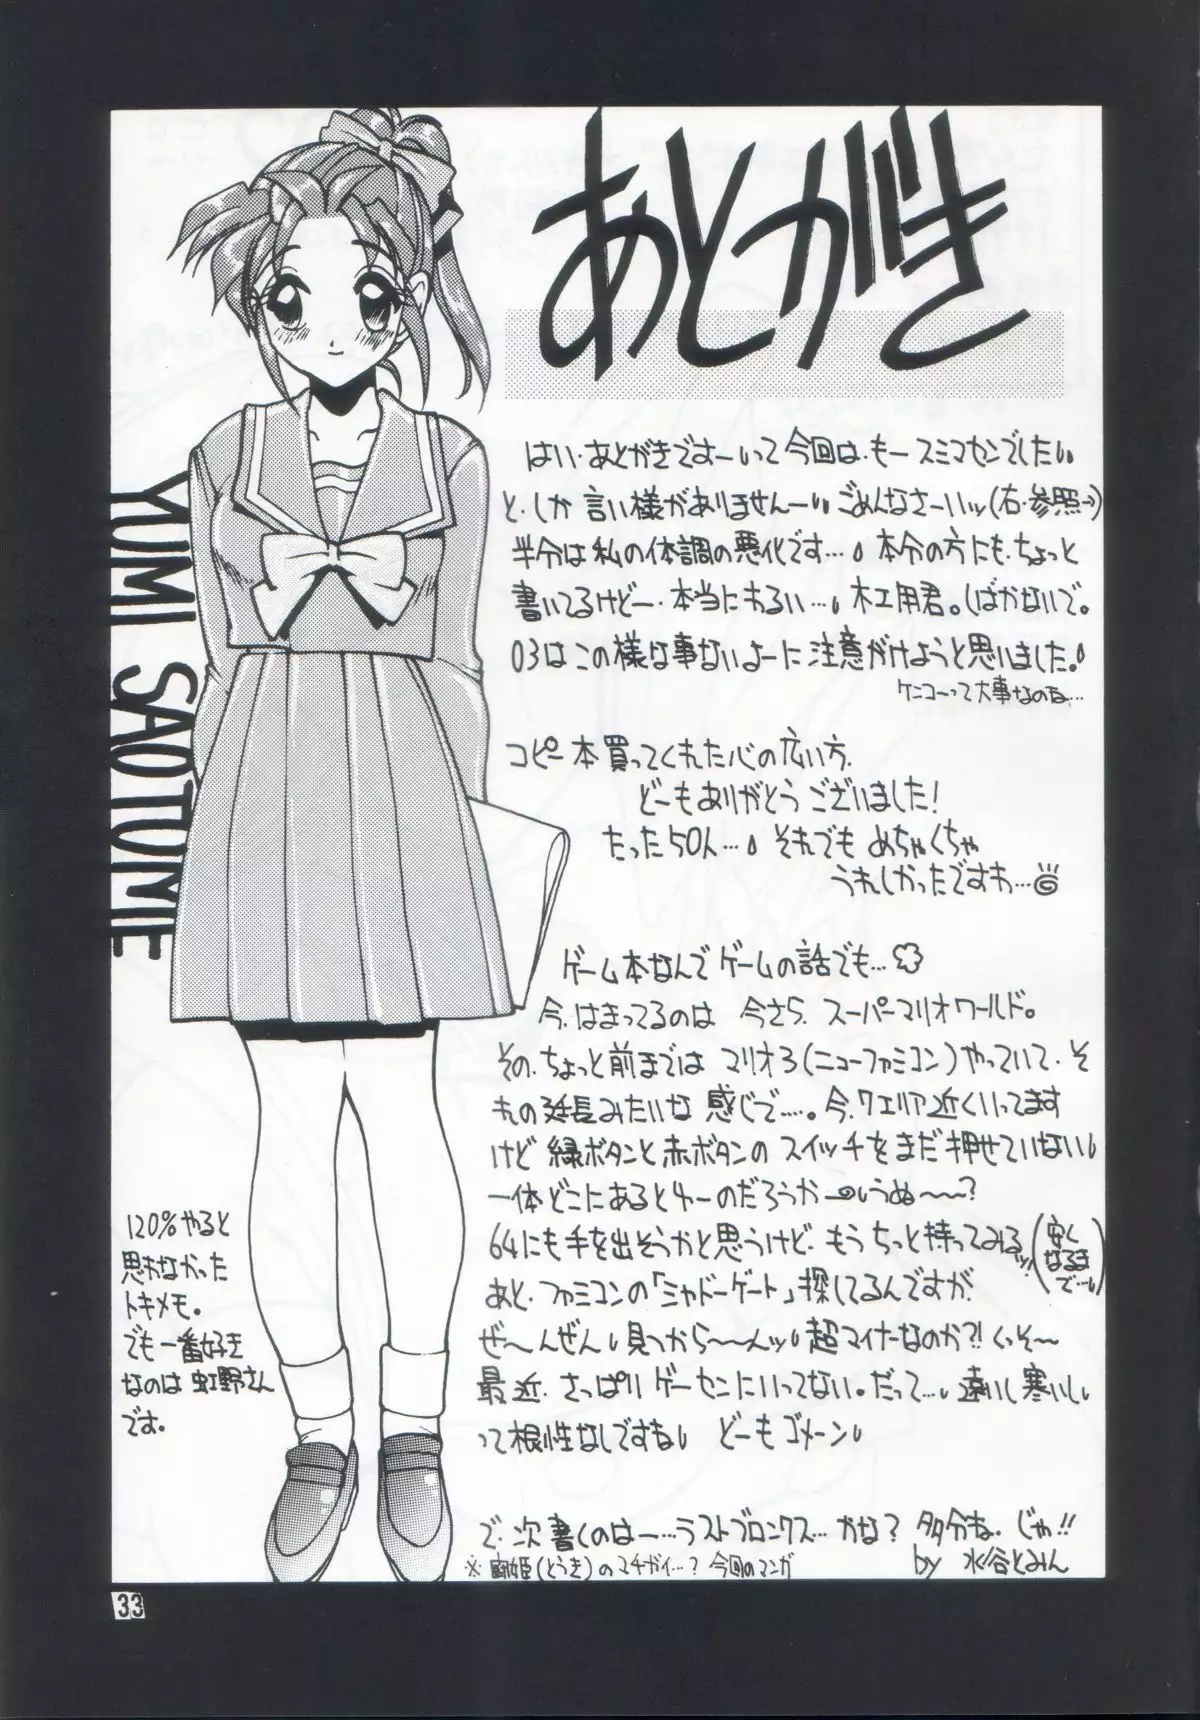 あとがき
はい・あとがきですーって今回は・もースミマセンでした
と、しか言い様がありませんーごめんなさーいッ(右・参照→)
半分は私の体調の悪化です…。本令の方にも、ちょっと
書いてるけどー・本当にあるい…。木工用君。しばかないで。
03はこの様な事ないよーに注意がけようと思いました。
ケンコーって大事なのね…
コピー本買ってくれた心の広い方、
どーもありがとうございました!
たった50人…それでもめちゃくちゃ
うれしかったですわ…
ゲーム本なんでゲームの話でも…
今、はまってるのは 今さら、スーパーマリオワールド。
その、ちょっと前までは マリオ3(ニューファミコン)やっていて、そ
れの延長みたいな 感じで……。今、7エリア近くいってます
けど 緑ボタンと赤ボタンの スイッチをまだ押せていない
一体どこにあるとゆーのだろうかーうぬ〜〜?
64にも手を出そうかと思うけど、もうちっと待ってみるッ(安くなるまで…)
あと、ファミコンの「シャドーゲート」探してるんですが、
ぜ〜んぜん見つから〜〜んッ 超マイナーなのか?!くっそ〜
最近、さっぱりゲーセンにいってない。だって… 遠いし寒いし
って根性なしですね どーもゴメーン
で、次書くのはー…ラストブロンクス…かな? 多分ね。じゃ!!
※ 姫(とうき)のマチガイ…? 今回のマンガ
by 水谷とみん
YUMI SAOTOME
120%やると
思わなかった
トキメモ。
でも一番好き
なのは虹野さん
です。
33